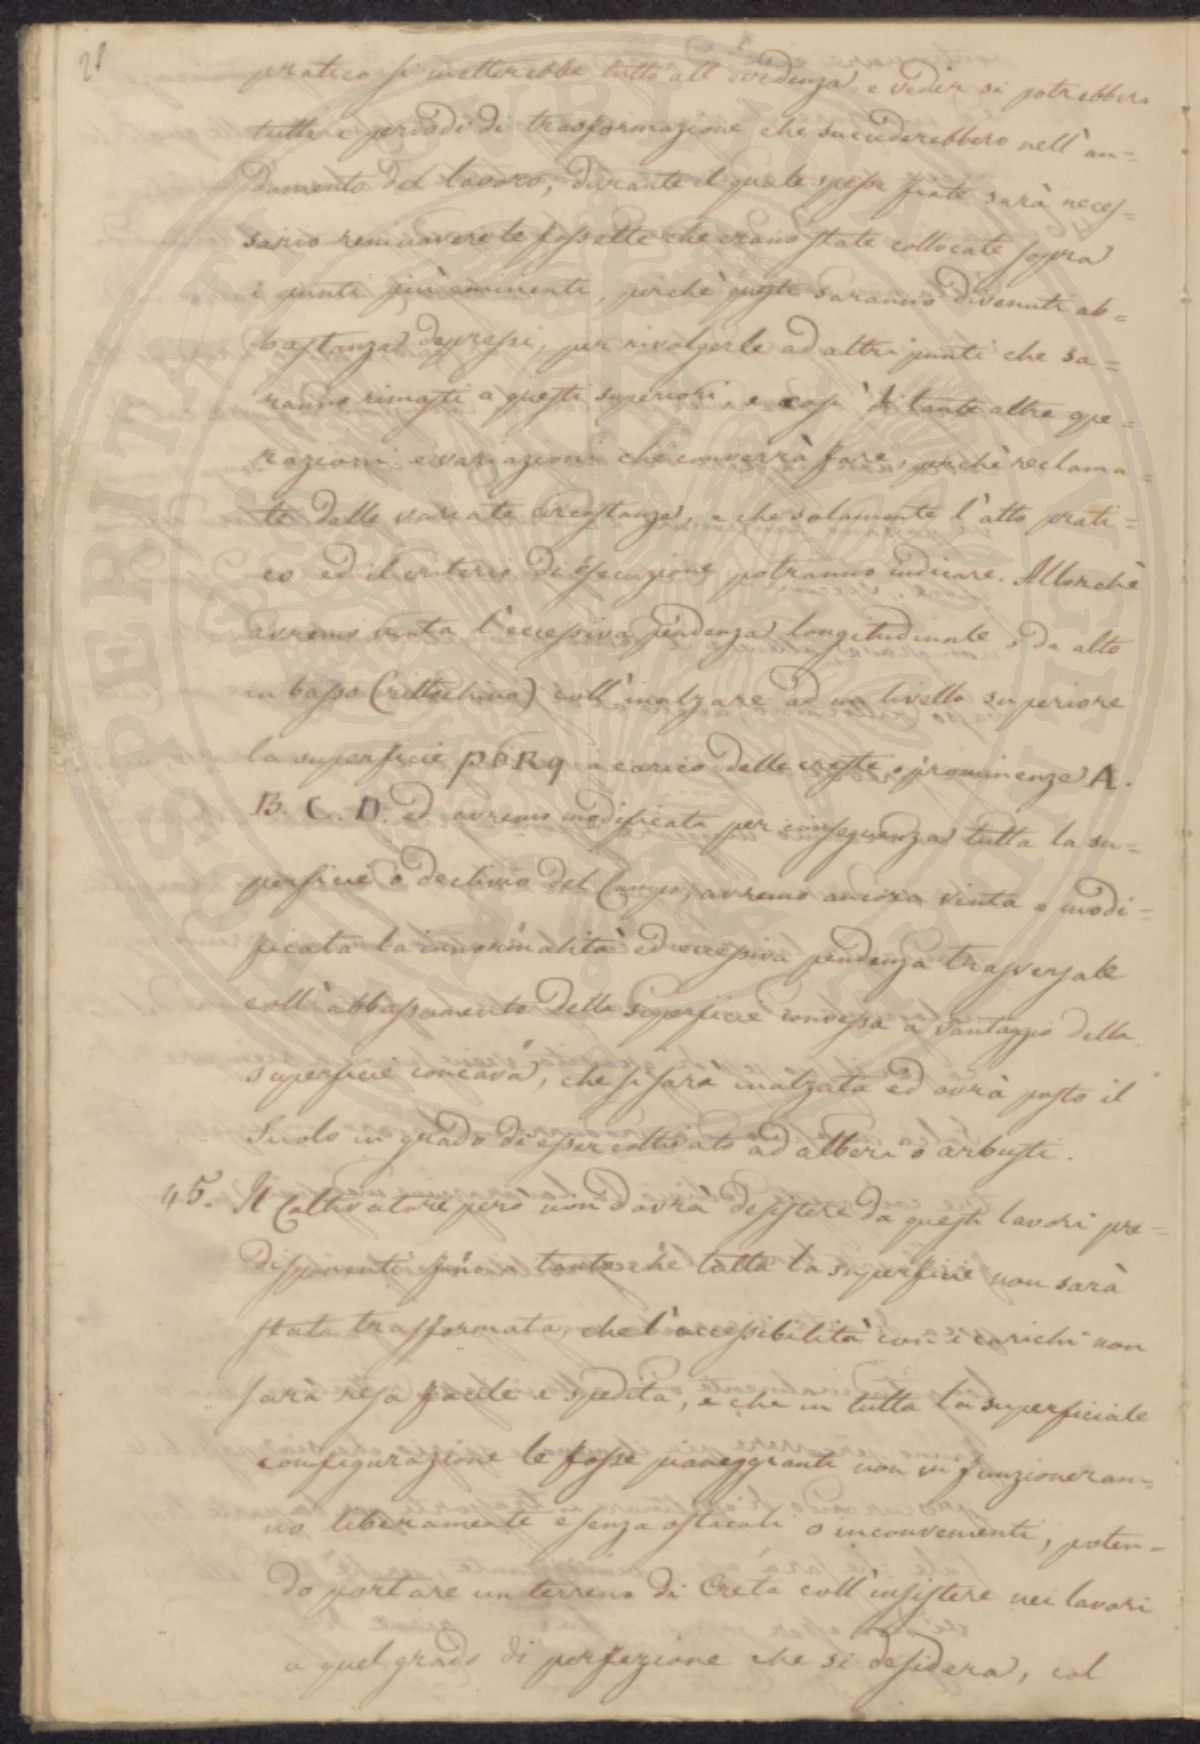 28
pratico si metterebbe tutto all'evidenza, e veder si potrebbero
tutti i periodi di trasformazione che succederebbero nell'an=
damento del lavoro, durante il quale spesse fiate sarà neces=
sario remuovere le fossette che erano state collocate sopra
i punti più eminenti, perchè questi saranno divenuti ab=
bastanza depressi, per rivolgerle ad altri punti che sa=
ranno rimasti a questi superiori, e così di tante altre ope=
razioni e variazioni che converrà fare, perchè reclama=
te dalle variate circostanze, e che solamente l'atto prati=
co ed il criterio di esecuzione potranno indicare. Allorchè
avremo vinta l'eccessiva pendenza longitudinale o da alto
in basso (rittochino) coll'inalzare ad un livello superiore
la superficie p6Rq a carico delle creste o prominenze A.
B. C. D. ed avremo modificata per conseguenza tutta la su=
perficie o declivio del Campo, avremo ancora vinta e modi=
ficata la innormalità ed eccessiva pendenza trasversale
coll'abbassamento della superficie convessa a vantaggio della
superficie concava, che si sarà inalzata ed avrà posto il
Suolo in grado di esser coltivato ad alberi o arbusti.
45. Il Coltivatore però non dovrà desistere da questi lavori pre=
disponenti fino a tanto che tutta la superficie non sarà
stata trasformata, che l'accessibilità con i carichi non
sarà resa facile e spedita, e che in tutta la superficiale
configurazione le fosse pianeggianti non vi funzioneran=
no liberamente e senza ostacoli o inconvenienti, poten=
do portare un terreno di Creta coll'insistere nei lavori
a quel grado di perfezione che si desidera, col
SPERITATIS PUBLICAE AUGUMENTO